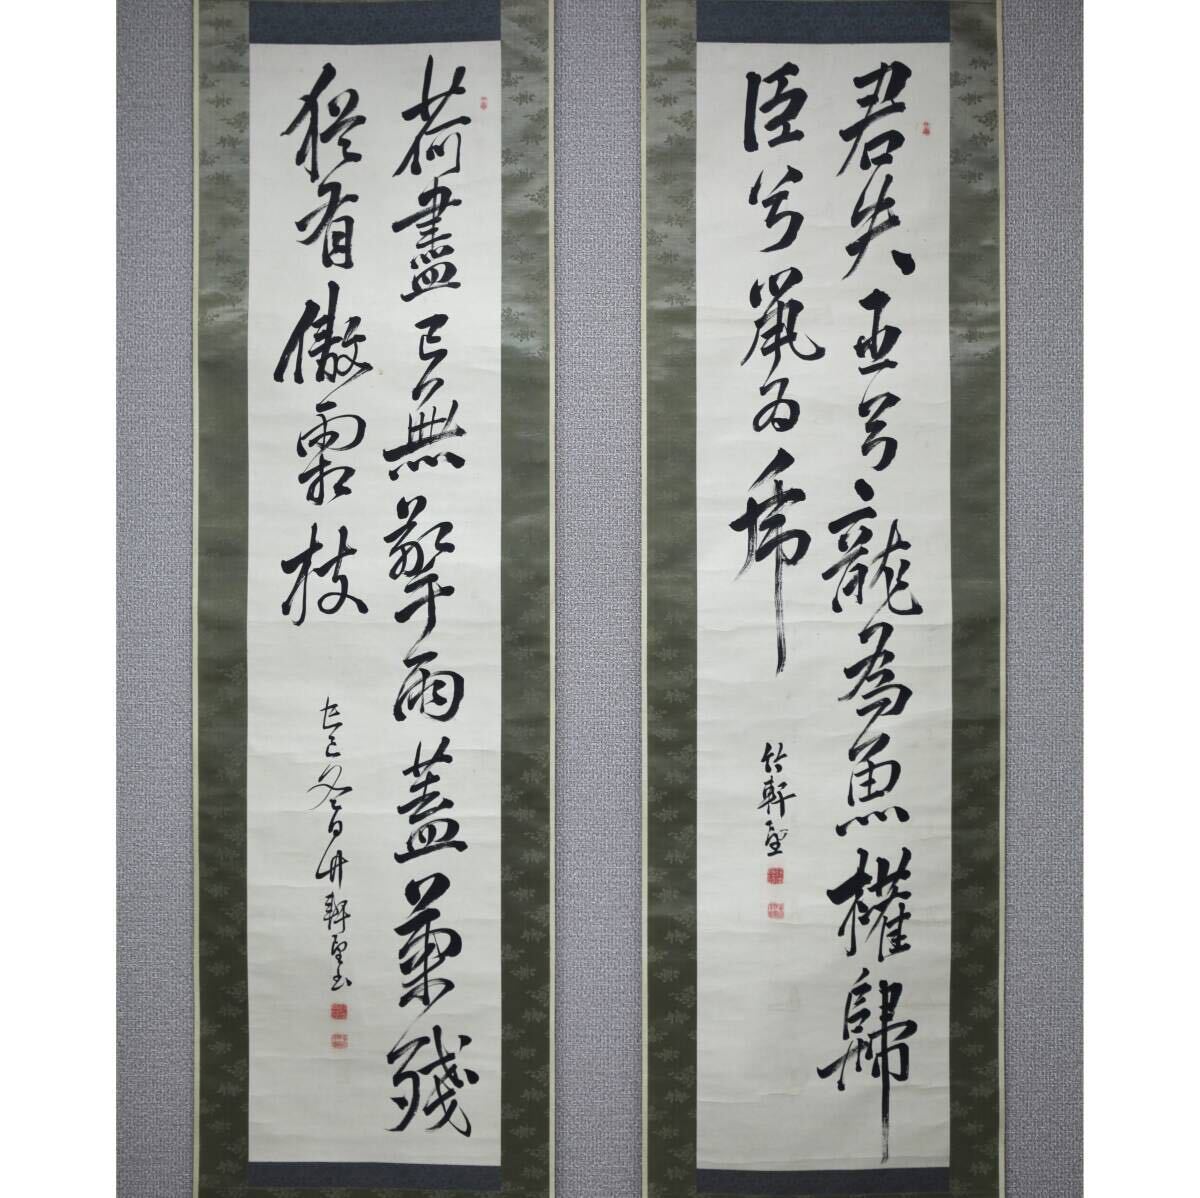 君失臣兮龍為魚權歸
臣兮鼠為虎
竹軒
荷盡已無擎雨蓋菊殘
猶有傲霜枝
巳冬日竹軒書